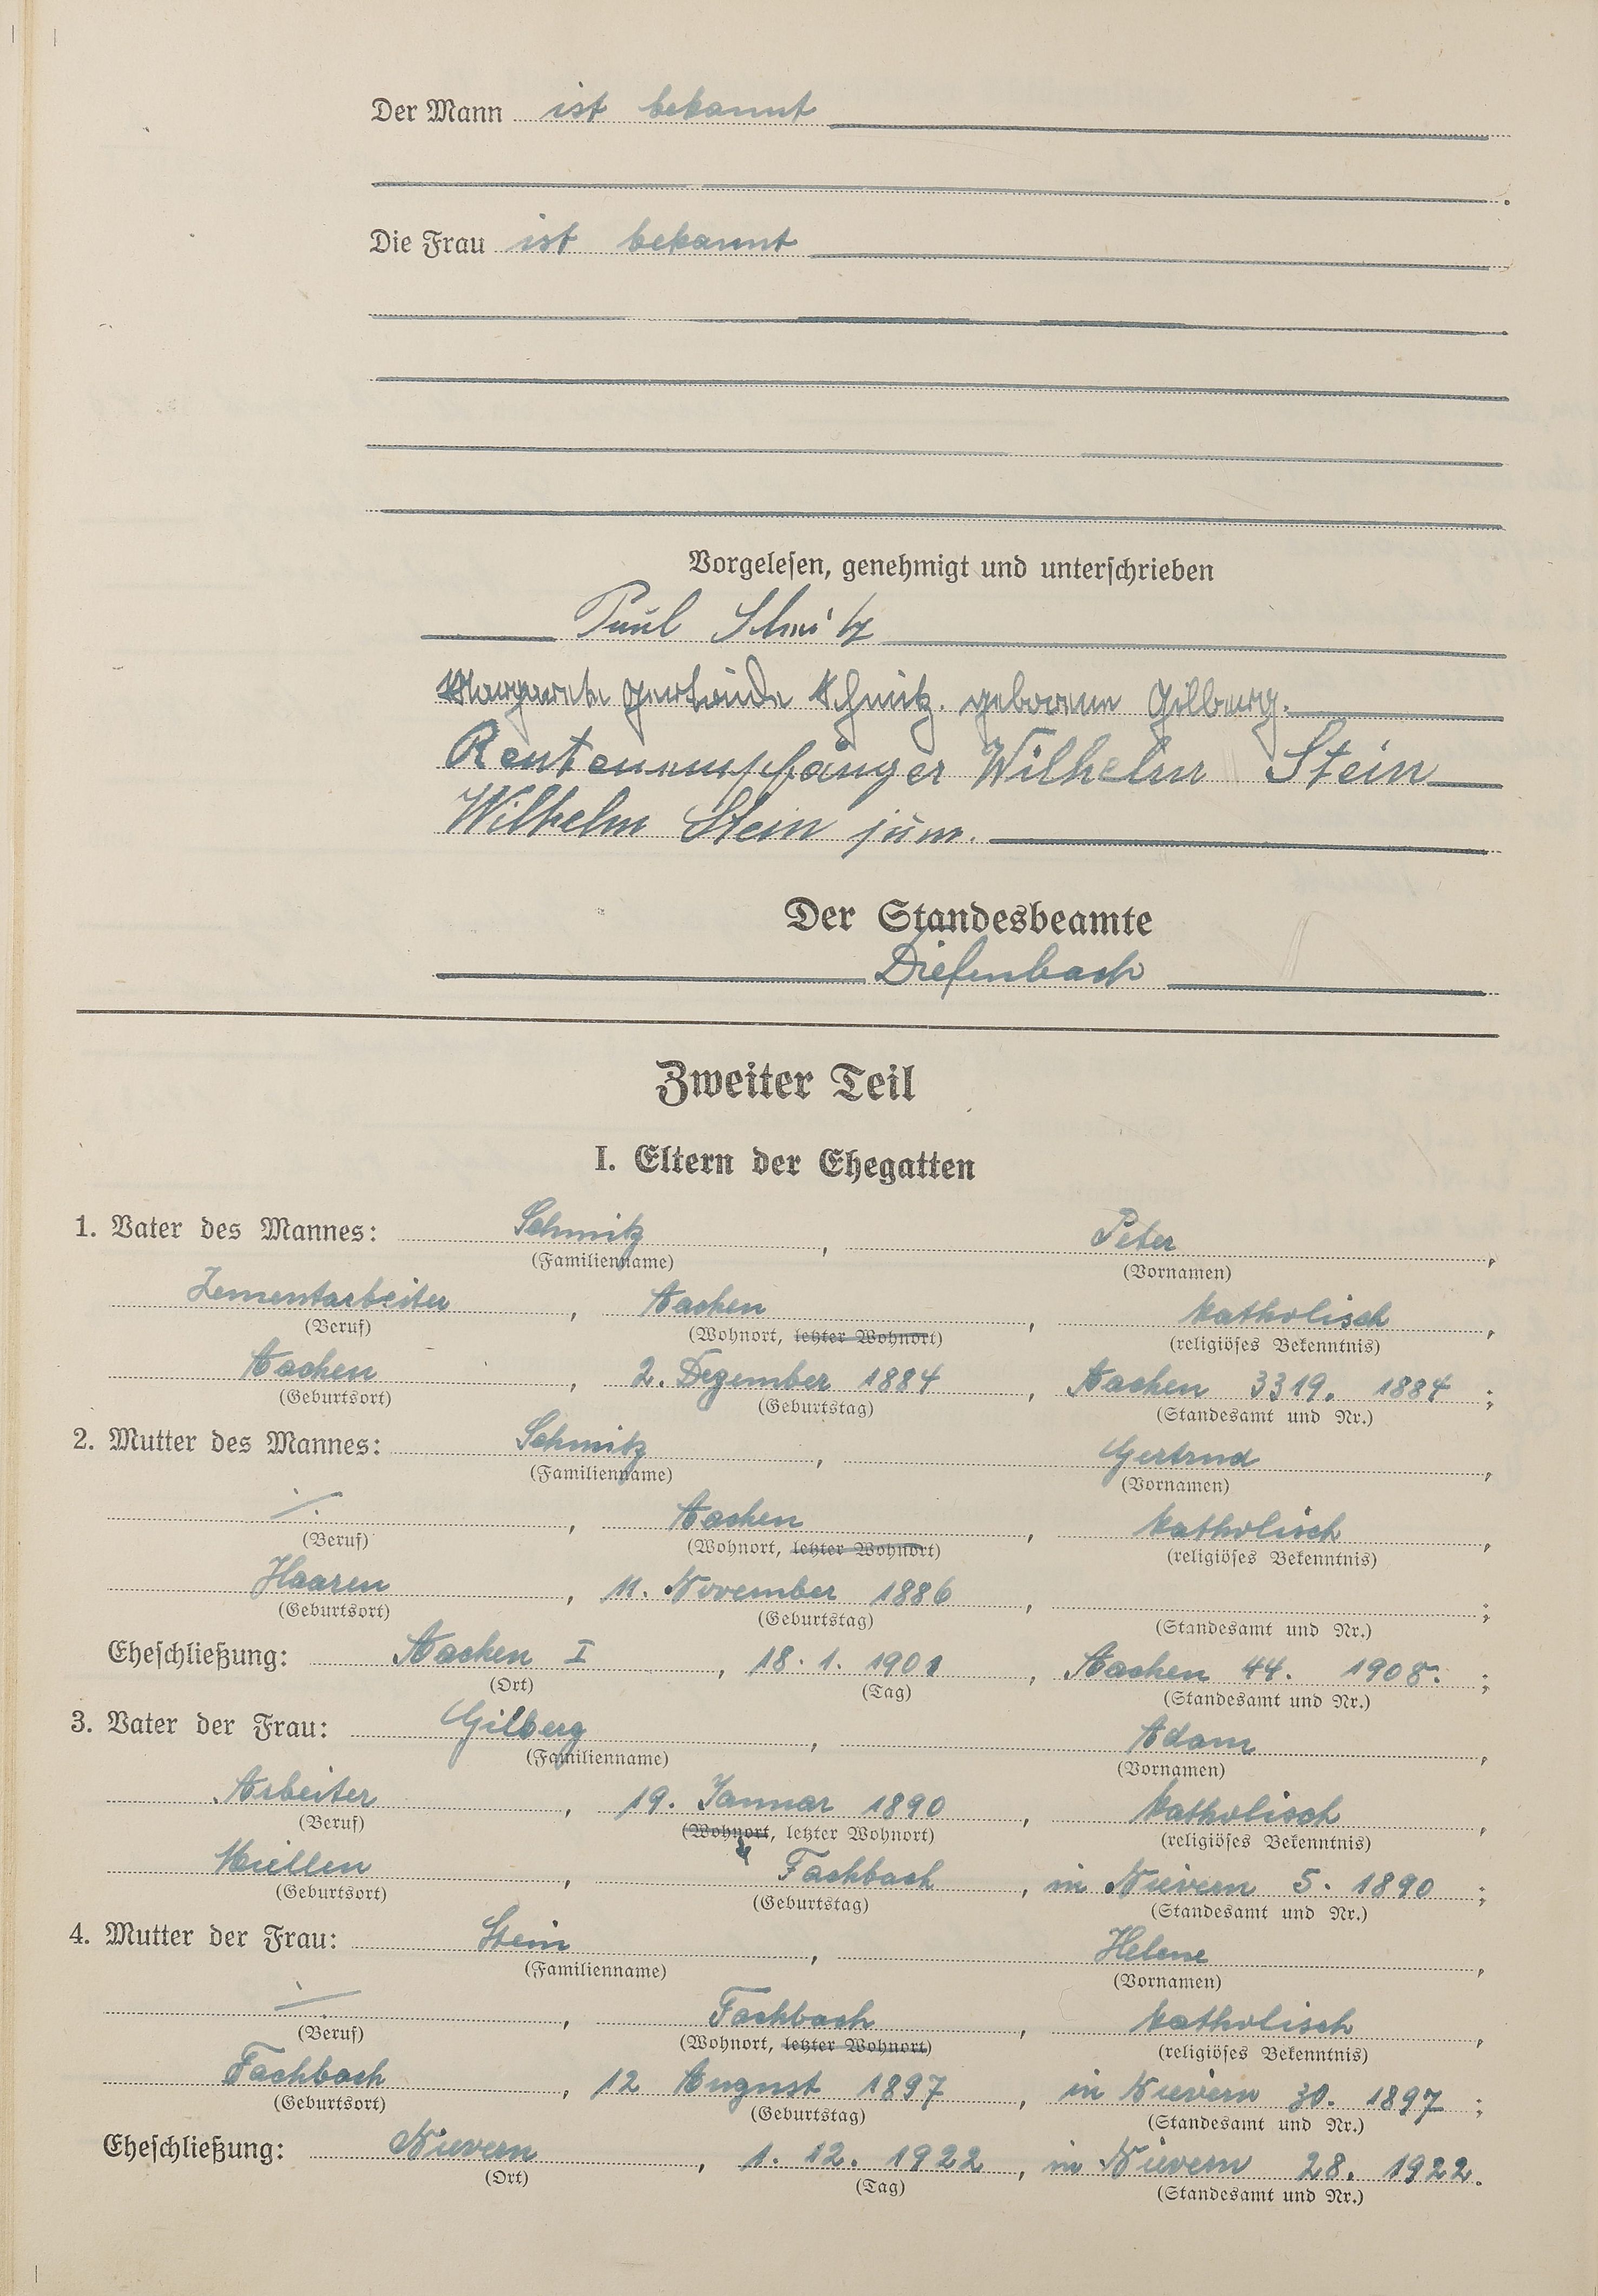 Der Mann ist bekannt
Die Frau ist bekannt
Vorgelesen, genehmigt und unterschrieben
Paul Schmitz
Margarete Gertrude Schmitz. geborene Gilberg.
Rentenempfänger Wilhelm Stein
Wilhelm Stein jun.
Der Standesbeamte
Diefenbach
Zweiter Teil
I. Eltern der Ehegatten
1. Vater des Mannes: Schmitz, Peter,
(Familienname) (Vornamen)
Zementarbeiter, Aachen, katholisch,
(Beruf) (Wohnort, letzter Wohnort) (religiöses Bekenntnis)
Aachen, 2. Dezember 1884, Aachen 3319. 1884;
(Geburtsort) (Geburtstag) (Standesamt und Nr.)
2. Mutter des Mannes: Schmitz, Gertrud,
(Familienname) (Vornamen)
/., Aachen, katholisch,
(Beruf) (Wohnort, letzter Wohnort) (religiöses Bekenntnis)
Haaren, 11. November 1886, ;
(Geburtsort) (Geburtstag) (Standesamt und Nr.)
Eheschließung: Aachen I, 18. 1. 1901, Aachen 44. 1908.;
(Ort) (Tag) (Standesamt und Nr.)
3. Vater der Frau: Gilberg, Adam,
(Familienname) (Vornamen)
Arbeiter, 19. Januar 1890, katholisch,
(Beruf) (Wohnort, letzter Wohnort) (religiöses Bekenntnis)
Miellen, Fachbach, in Nievern 5. 1890;
(Geburtsort) (Geburtstag) (Standesamt und Nr.)
4. Mutter der Frau: Stein, Helene,
(Familienname) (Vornamen)
/., Fachbach, katholisch,
(Beruf) (Wohnort, letzter Wohnort) (religiöses Bekenntnis)
Fachbach, 12 August 1897, in Nievern 30. 1897;
(Geburtsort) (Geburtstag) (Standesamt und Nr.)
Eheschließung: Nievern, 1. 12. 1922, in Nievern 28. 1922.
(Ort) (Tag) (Standesamt und Nr.)